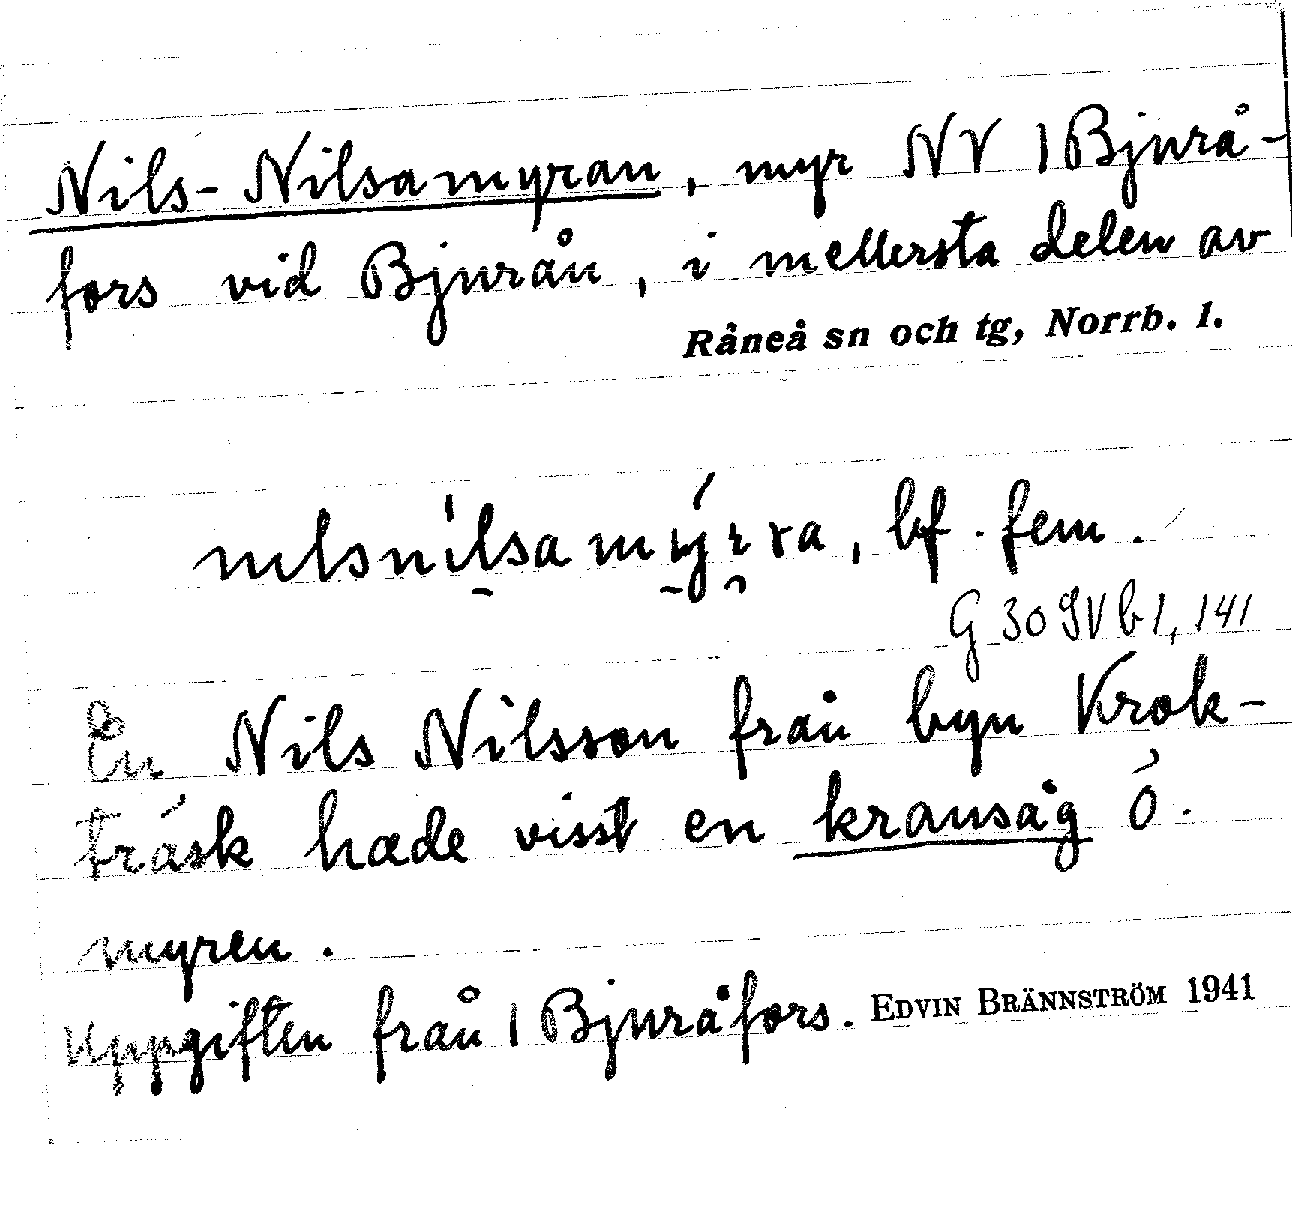 Nils-Nilsamyran, myr NV 1 Bjurå-
fors vid Bjurån, i mellersta delen av
Råneå sn och tg, Norrb. l.
nɩlsnɩlsamyrra, bf. fem.
G 30 SV b1, 141
En Nils Nilsson från byn Krok-
träsk hade visst en kransåg å
myren.
Uppgiften från 1 Bjuråfors. EDVIN BRÄNNSTRÖM 1941